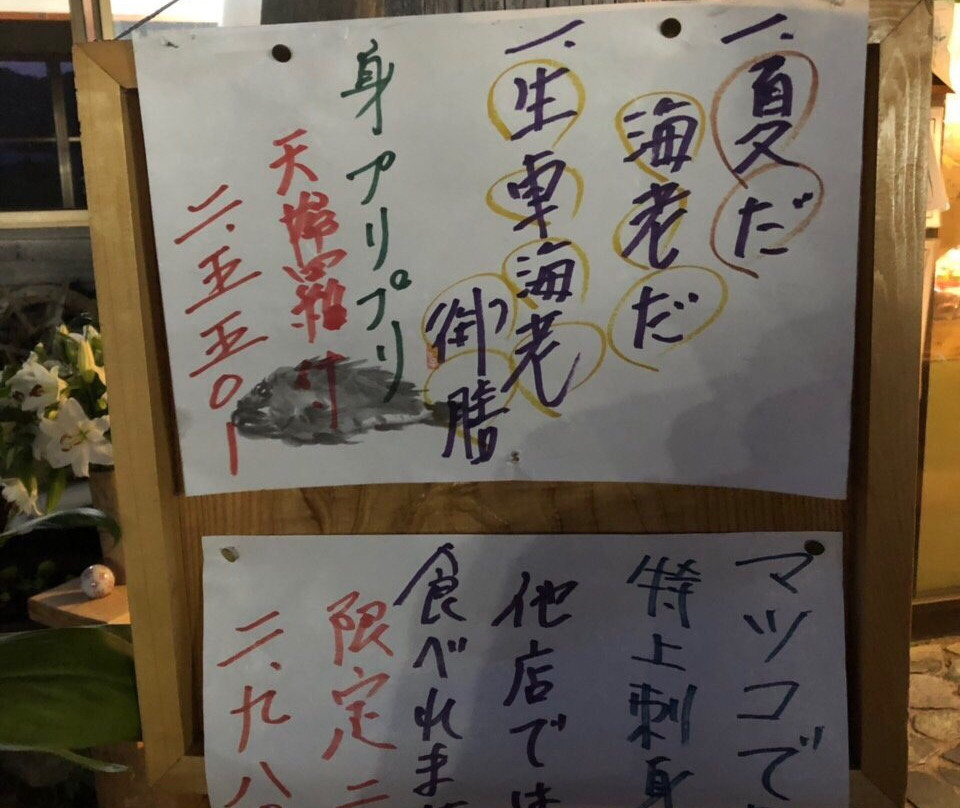 一、夏だ
海老だ
一、生車海老
御膳
身アリプリ
天婦羅付
二、五五〇ー
マツコで
特上刺身
他店では
食べれま
限定二
二、九八